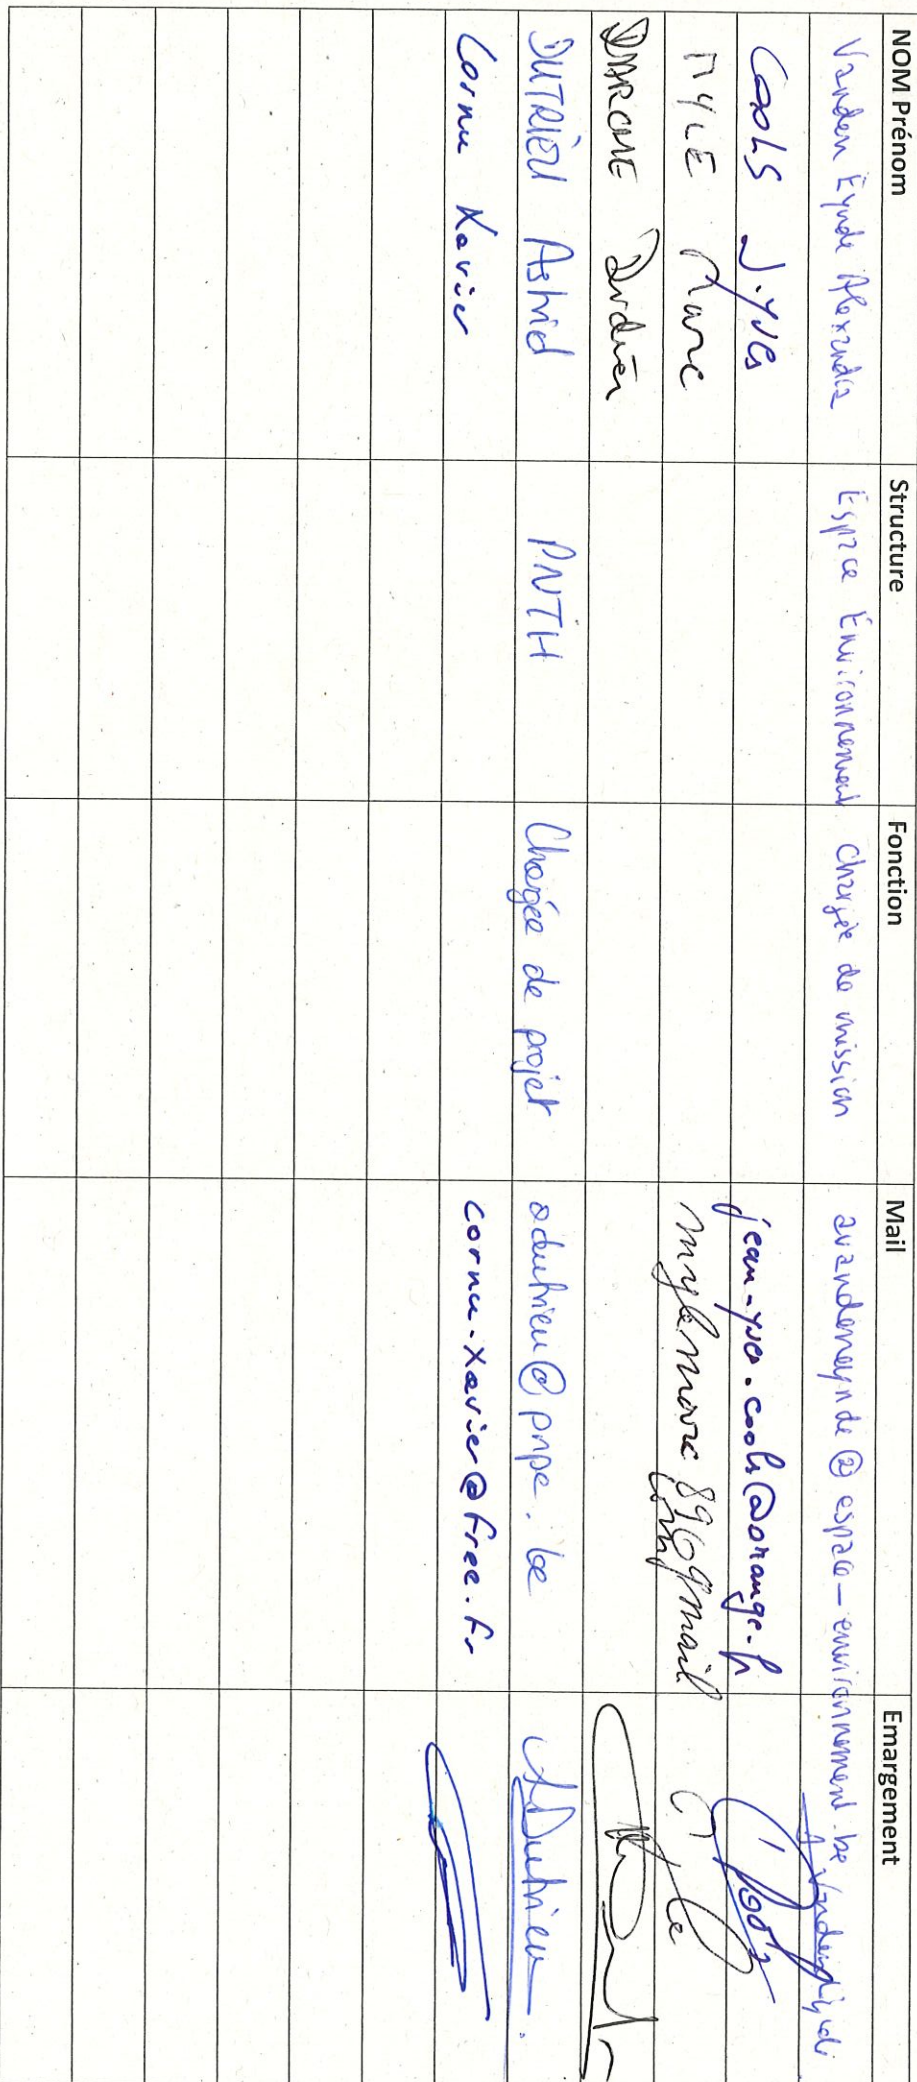 NOM Prénom Structure Fonction Mail Emargement
Vanden Eynde Alexandra Espace Environnement Chargée de mission avandeneynde@espace-environnement.be
Cools J.Yves jean-yves.cools@orange.fr Cools
MYLE Marc mylemarc89@gmail Myle
com
DMARCHE Didier
DUTRIEU Astrid PNTH Chargée de projet adutrieu@pnpe.be ADutrieu
Cornu Xavier cornu.xavier@free.fr